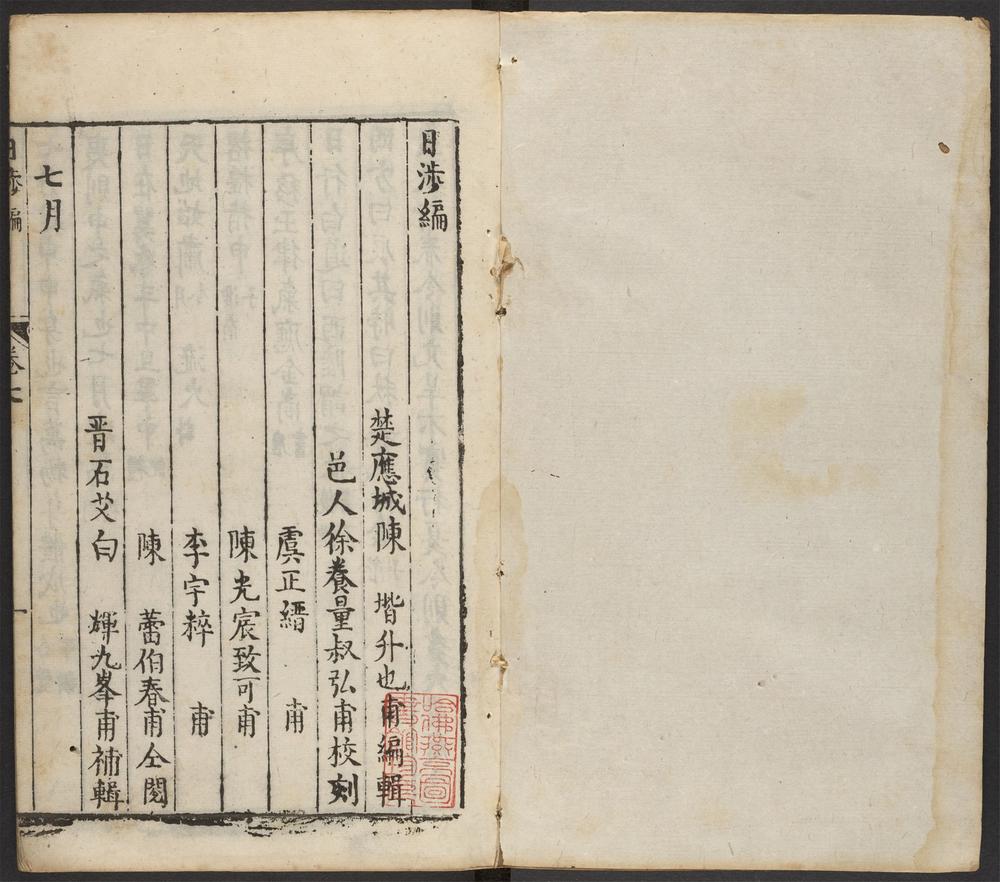 日涉編
楚應城陳 堦升也甫編輯
邑人徐養量叔弘甫校刻
虞正緝 甫
陳光宸致可甫
李字粹 甫
陳 蕾伯春甫仝閱
晋石艾白 輝九峯甫補輯
七月
日涉編
卷七
一